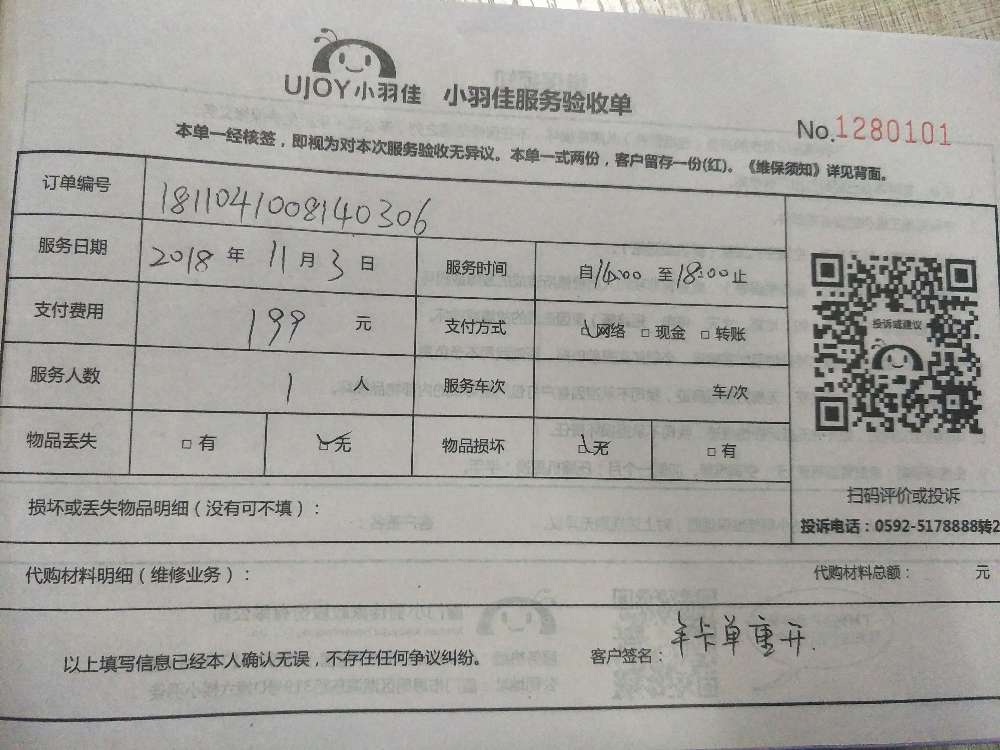 UJOY小羽佳 小羽佳服务验收单
No.1280101
本单一经核签，即视为对本次服务验收无异议。本单一式两份，客户留存一份(红)。《维保须知》详见背面。
订单编号 1811041008140306
服务日期 2018 年 11 月 3 日 服务时间 自14:00 至18:00止
支付费用 199 元 支付方式 ☑网络 □现金 □转账
服务人数 1 人 服务车次 车/次
物品丢失 □有 ☑无 物品损坏 ☑无 □有
投诉或建议
扫码评价或投诉
投诉电话：0592-5178888转2
损坏或丢失物品明细（没有可不填）：
代购材料明细（维修业务）： 代购材料总额： 元
以上填写信息已经本人确认无误，不存在任何争议纠纷。 客户签名： 年卡单重开.